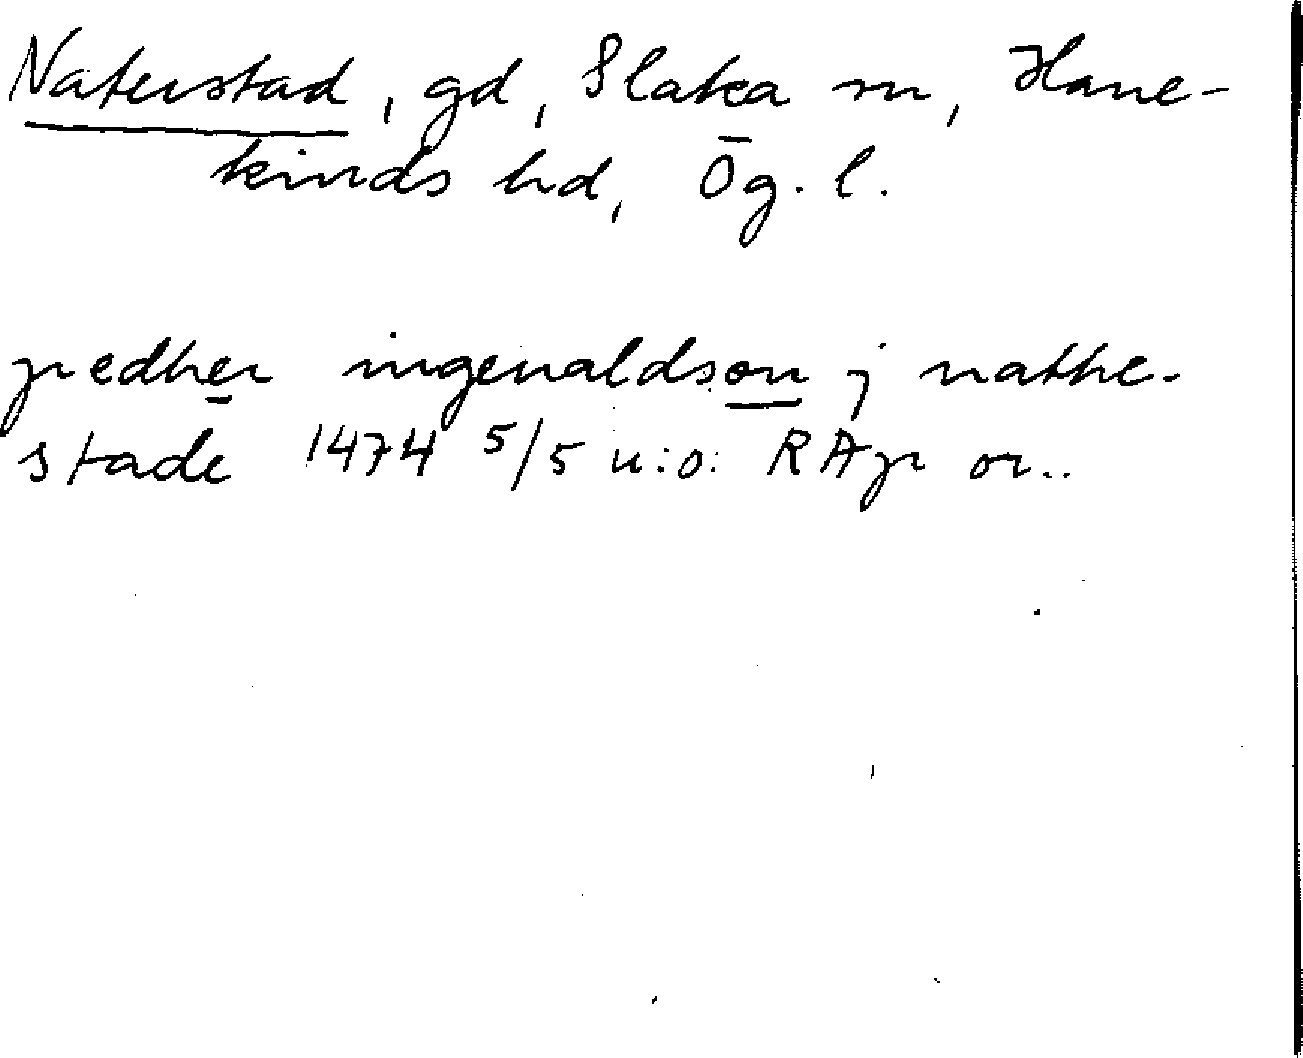 Naterstad, gd, Slaka sn, Hane-
kinds hd, Ög. l.
pedher ingeualdson j nathe-
stade 1474 5/5 u:o: RAp or..